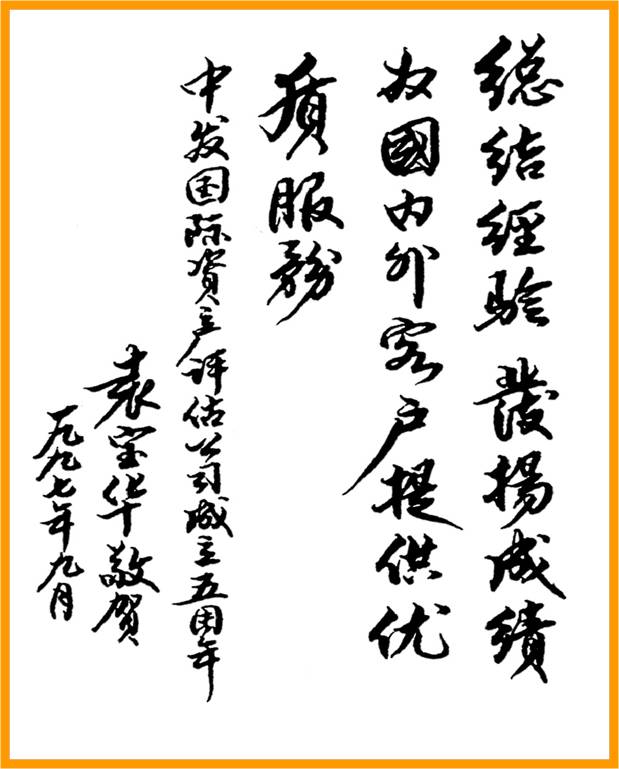 總結經驗 發揚成績
为國内外客户提供优
质服務
中发国际資产评估公司成立五周年
袁宝华敬贺
一九九七年九月